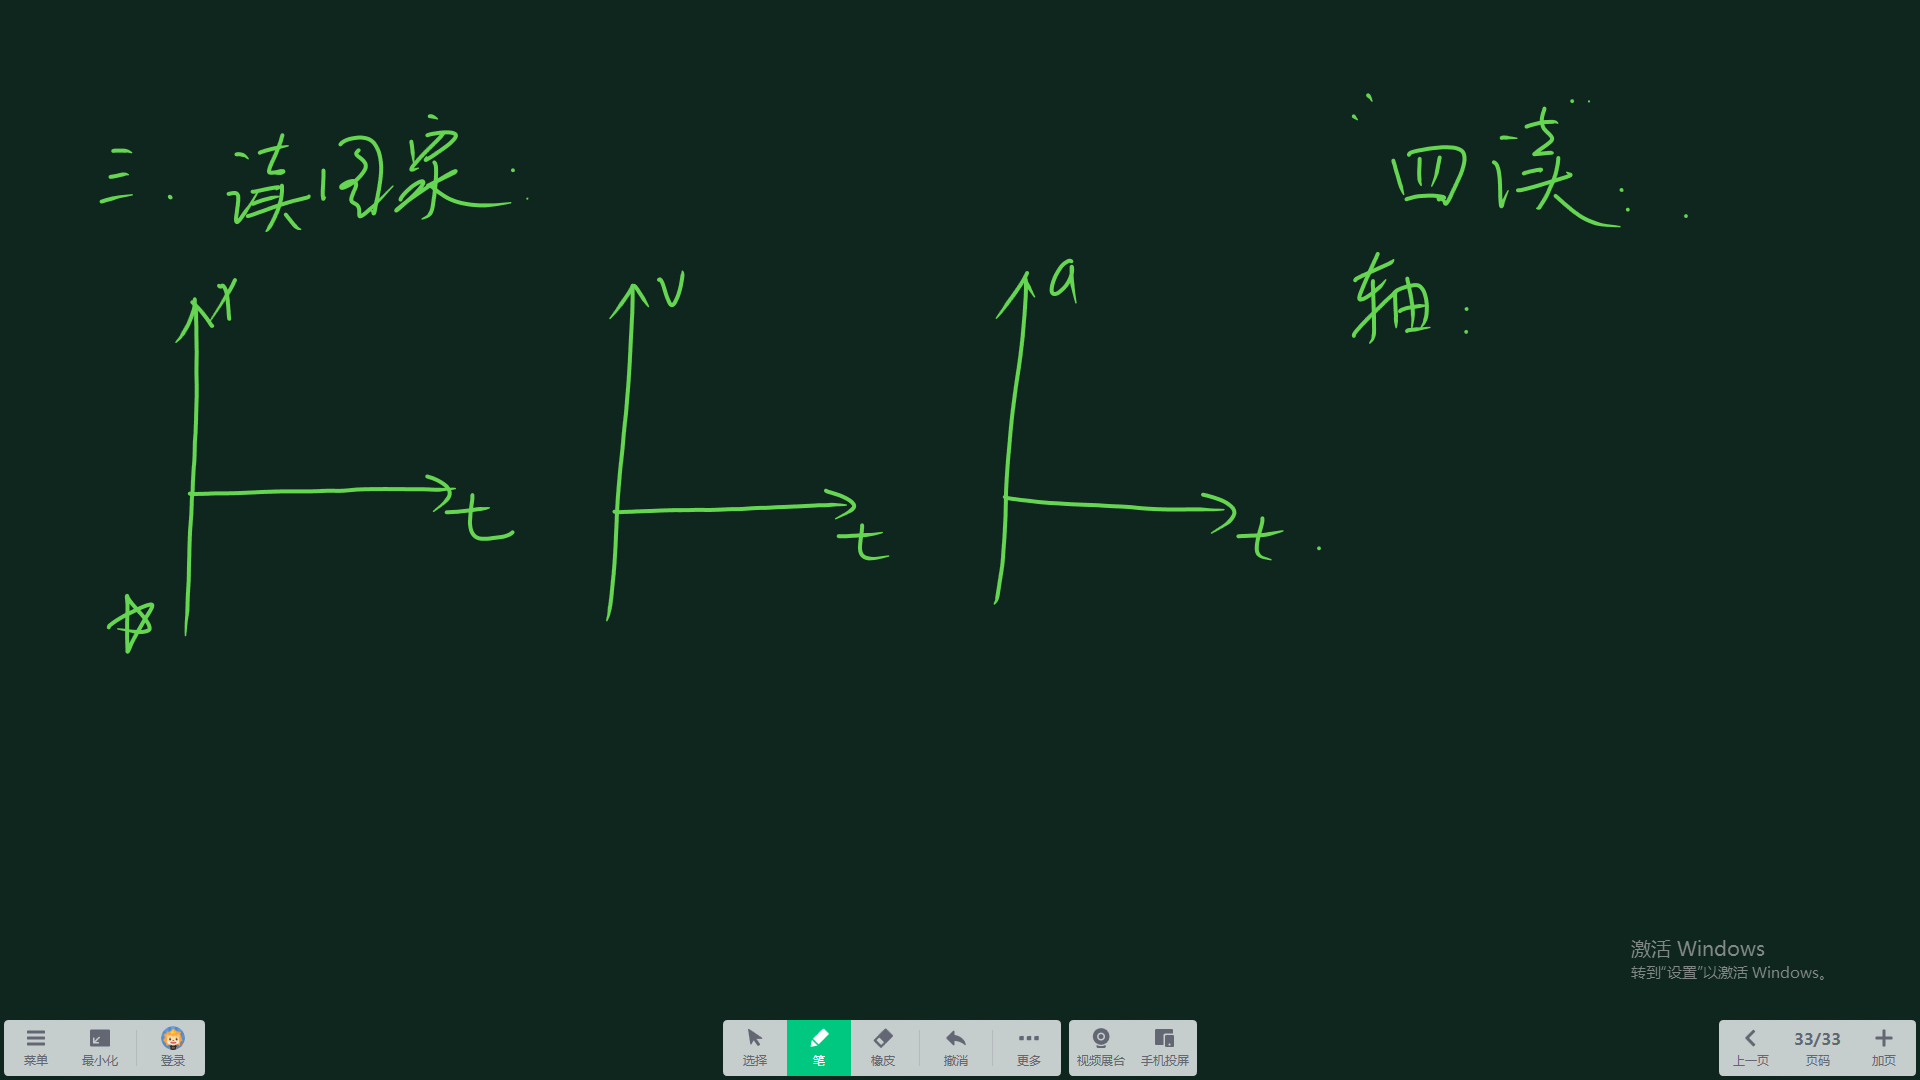 三.读图案:
四读:
轴:
x
t
v
t
a
t
激活 Windows
转到“设置”以激活 Windows。
菜单
最小化
登录
选择
笔
橡皮
撤消
更多
视频展台
手机投屏
上一页
33/33
页码
加页